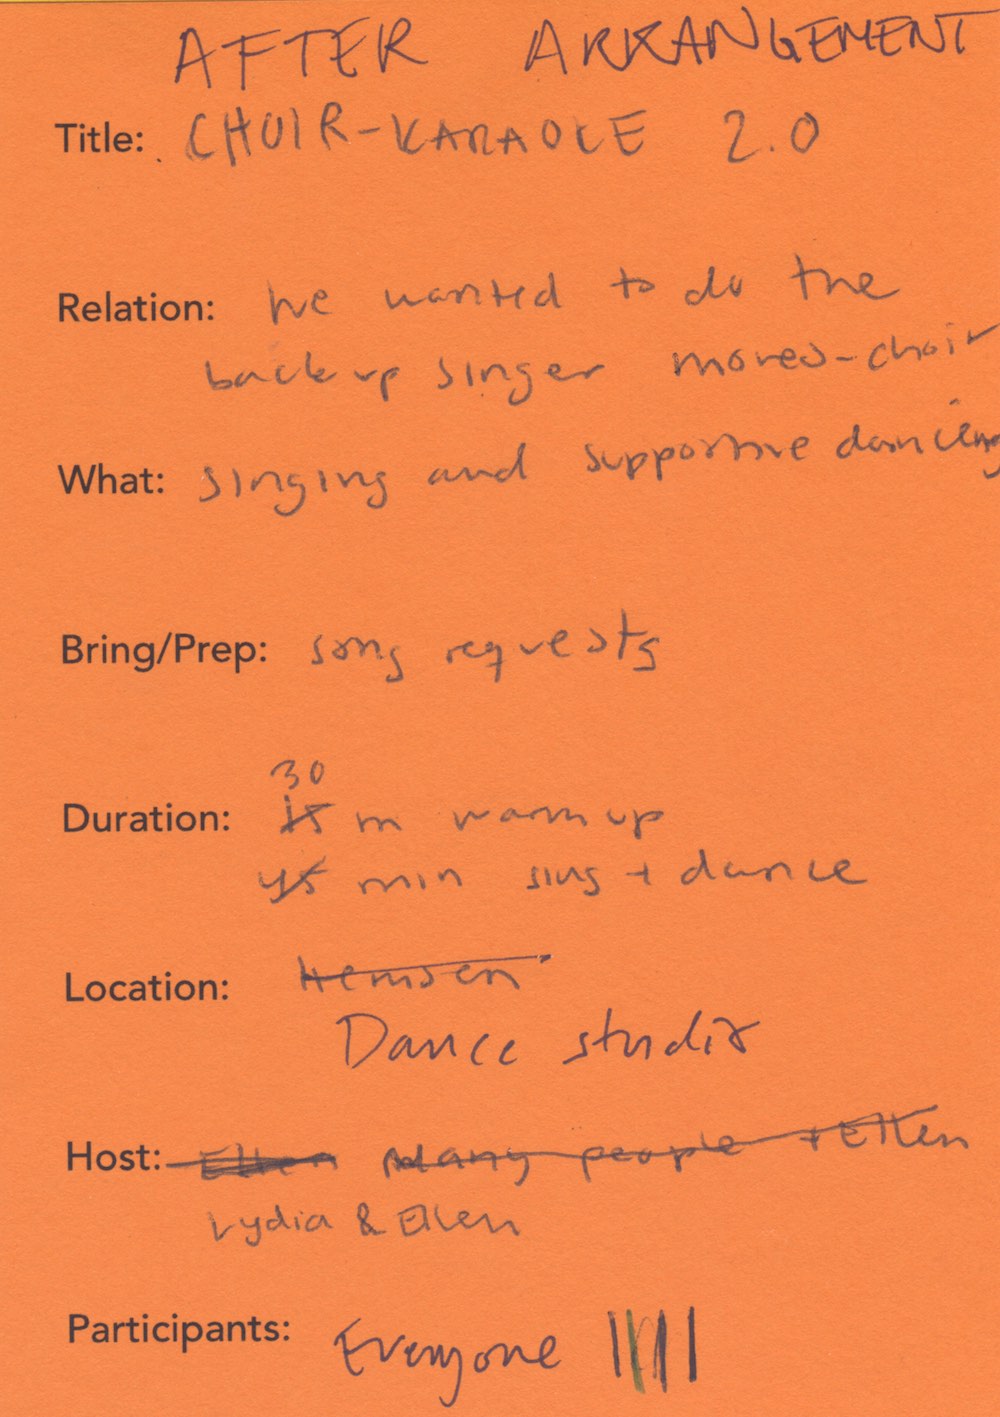 AFTER ARRANGEMENT
Title: CHOIR-KARAOKE 2.0
Relation: We wanted to do the
backup singer moves-choir
What: singing and supportive dancing
Bring/Prep: song requests
30
Duration: 15 m warm up
45 min sing + dance
Location: Hemsen
Dance studio
Host: Ellen Many people + Ellen
Lydia & Ellen
Participants: Everyone |||||